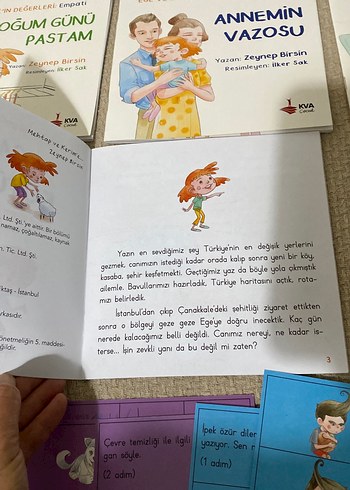 'İN DEĞERLERİ: Empati
OĞUM GÜNÜ
PASTAM
Yazan: Zeynep Birsin
Resimleyen: İlker Sak
KVA
Çocuk
ANNEMİN
VAZOSU
Yazan: Zeynep Birsin
Resimleyen: İlker Sak
KVA
Çocuk
Mehtap ve Kerim'e...
Zeynep Birsin
Ltd. Şti.'ye aittir. Bir bölümü
namaz, çoğaltılamaz, kaynak
n. Tic. Ltd. Şti.
ktaş - İstanbul
rkasıdır.
önetmeliğinin 5. maddesi-
ğildir.
Yazın en sevdiğimiz şey Türkiye'nin en değişik yerlerini
gezmek, canımızın istediği kadar orada kalıp sonra yeni bir köy,
kasaba, şehir keşfetmekti. Geçtiğimiz yaz da böyle yola çıkmıştık
ailemle. Bavullarımızı hazırladık, Türkiye haritasını açtık, rota-
mızı belirledik.
İstanbul'dan çıkıp Çanakkale'deki şehitliği ziyaret ettikten
sonra o bölgeyi geze geze Ege'ye doğru inecektik. Kaç gün
nerede kalacağımız belli değildi. Canımız nereyi, ne kadar is-
terse... İşin zevkli yanı da bu değil mi zaten?
3
Çevre temizliği ile ilgili
gan söyle.
(2 adım)
İpek özür diler
yazıyor. Sen
(1 adım)